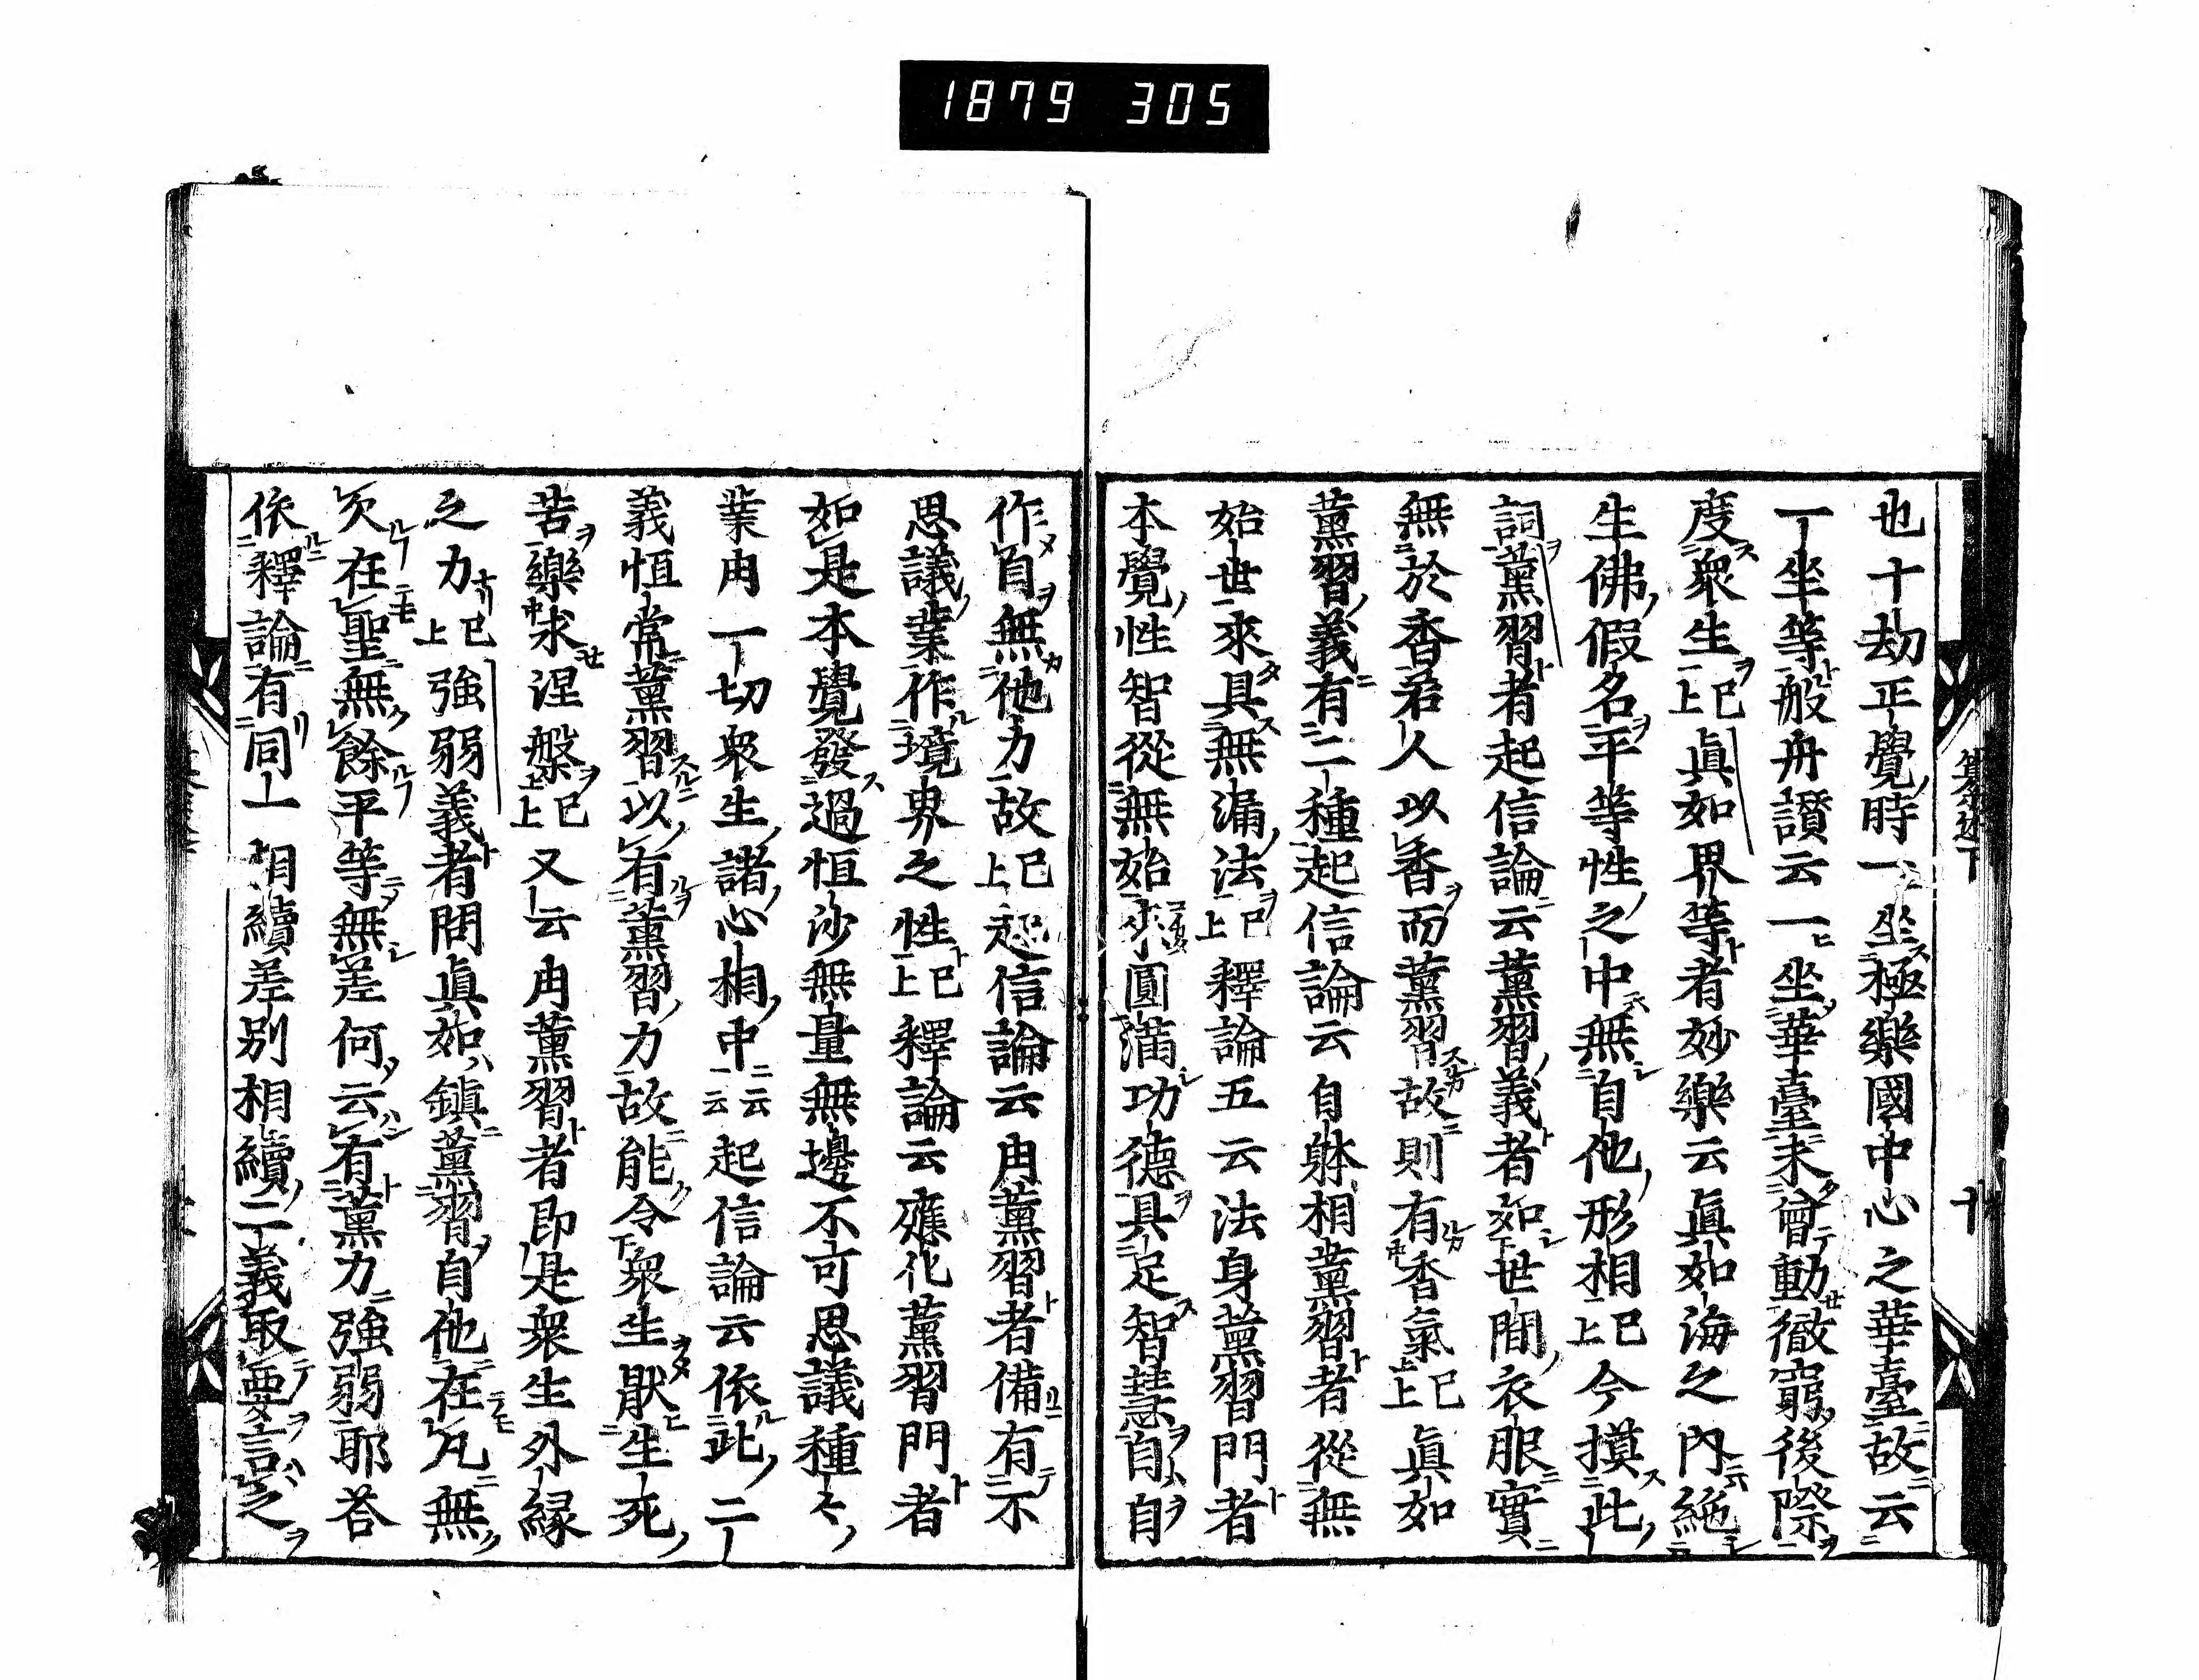 1879 305
也十劫正覺時一坐極樂國中心之華臺故云
一坐等般舟讃云一坐華臺未曾動徹窮後際
度衆生已上眞如界等者妙樂云眞如海之內絶
生佛假名平等性之中無自他形相已上今摸此
詞薫習者起信論云薫習義者如世間衣服實
無於香若人以香而薫習故則有香氣已上眞如
薫習義有二種起信論云自躰相薫習者從無
始世來具無漏法已上釋論五云法身薫習門者
本覺性智從無始來圓滿功德具足智慧自自
作自無他力故已上起信論云用薫習者備有不
思議業作境界之性已上釋論云應化薫習門者
如是本覺發過恒沙無量無邊不可思議種々
業用一切衆生諸心相中云云起信論云依此二
義恒常薫習以有薫習力故能令衆生厭生死
苦樂求涅槃已上又云用薫習者即是衆生外縁
之力已上強弱義者問眞如鎮薫習自他在凡無
在聖無餘平等無差何云有薫力強弱耶荅
依釋論有同一相續差別相續二義取要言之